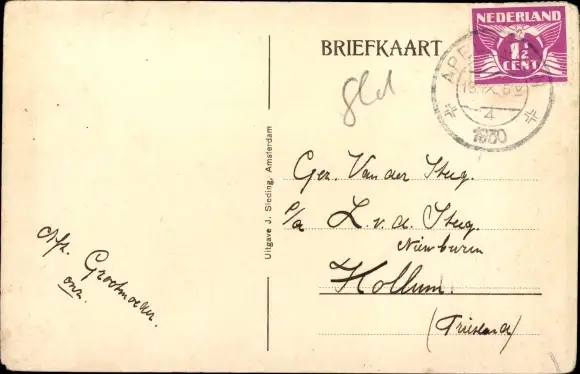 BRIEFKAART
NEDERLAND
7½
CENT
APE
1930
4
Uitgave J. Sleding, Amsterdam
Gez. Van der Steeg
p/a L. v. d. Steeg.
Nieuwburen
Hollum.
(Friesland)
Afz. Grootmoeder.
onz.